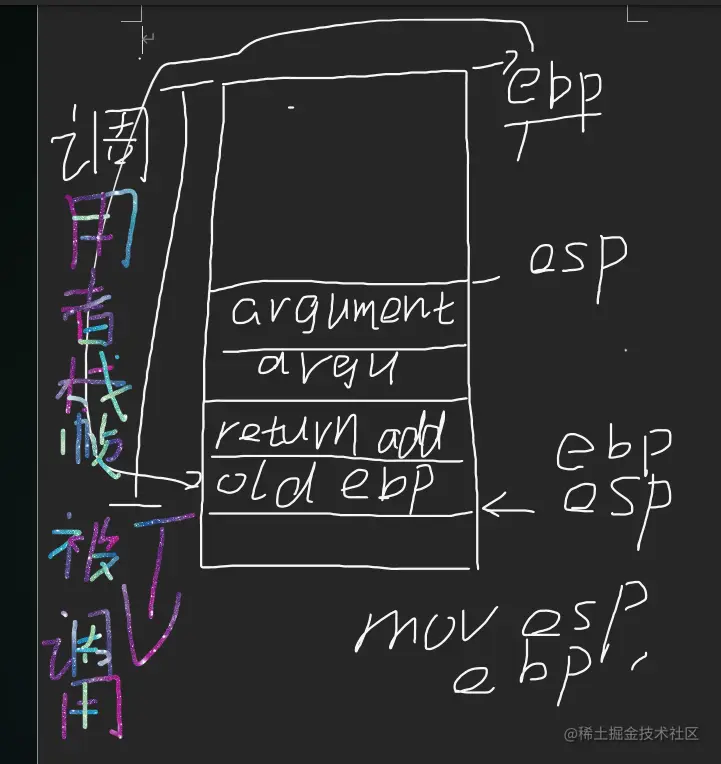 ebp
esp
argument
argu
return add
old ebp
ebp
esp
mov esp,
ebp
调用者栈帧
被调用
@稀土掘金技术社区